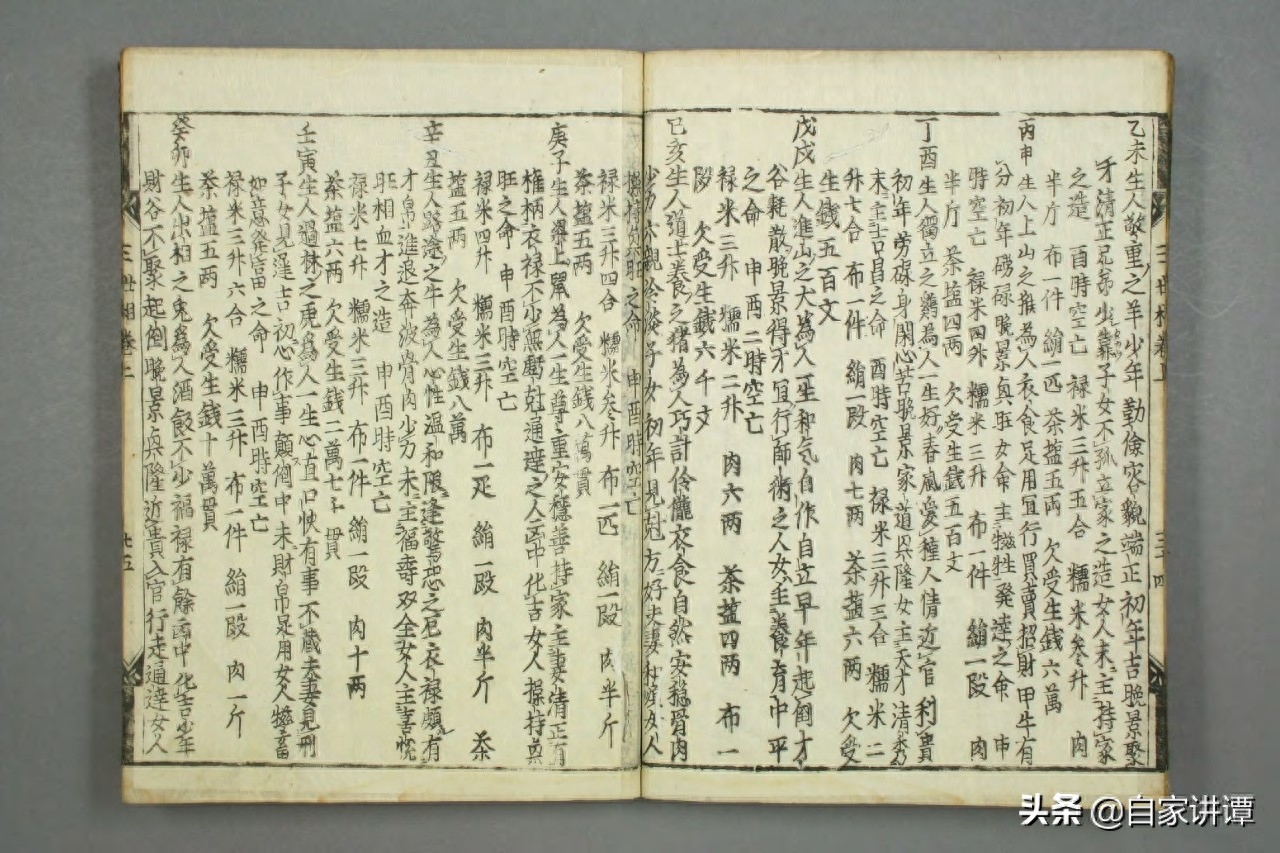 乙未生人敬重之羊少年勤儉容貌端正初年吉晚景聚
才清正兄弟少靠子女不孤立家之造女人末主持家
之造 酉時空亡 禄米三升五合 糯米叁升 肉
半斤 布一件 絹一匹 茶塩五兩 欠受生錢六萬
丙申生人上山之猴為人衣食足用宜行買賣招財甲牛有
分初年磅碌晚景真旺女命主牲發達之命 申
時空亡 禄米四升 糯米三升 布一件 絹一段 肉
半斤 茶塩四兩 欠受生錢五百文
丁酉生人獨立之鷄為人一生好春風愛種人情近官利貴
初年劳碌身閑心苦晚景家道興隆女主天才清秀
末主吉昌之命 酉時空亡 禄米三升三合 糯米二
升七合 布一件 絹一段 肉七兩 茶塩六兩 欠受
生錢五百文
戊戌生人進山之犬為人一生和气自作自立早年起倒才
谷耗散晚景得才宜行師術之人女主養育中平
之命 申酉二時空亡 肉六兩 茶塩四兩 布一
禄米三升 糯米二升
段 欠受生錢六千文
己亥生人道士養之猪為人巧計伶俐衣食自然安穩骨肉
少力六親冷淡子女初年見尅方好夫妻和順女人
操持興旺之命 申酉時空亡
禄米三升四合 糯米叁升 布一匹 絹一段 肉半斤
茶塩五兩 欠受生錢八萬貫
庚子生人梁上鼠為人一生尊重安穩善持家主事清正有
權柄衣禄不少無尅通達之人凶中化吉女人操持興
旺之命 申酉時空亡
禄米四升 糯米三升 布一疋 絹一段 肉半斤 茶
塩五兩 欠受生錢八萬
辛丑生人路途之牛為人心性温和限逢驚恐之厄衣禄頗有
才帛進退奔波骨肉少力末主福壽双全女人主喜悅
旺相血才之造 申酉時空亡
禄米七升 糯米三升 布一件 絹一段 肉十兩
茶塩六兩 欠受生錢二萬七千貫
壬寅生人過林之虎為人一生心直口快有事不藏夫妻見刑
子女見遲吉初心作事顛倒中末財帛足用女人牲畜
如意發吉苗之命 申酉時空亡
禄米三升六合 糯米三升 布一件 絹一段 肉一斤
茶塩五兩 欠受生錢十萬貫
癸卯生人出相之兔為人酒飯不少福禄有餘凶中化吉少年
財谷不聚起倒晚景興隆近貴入官行走通達女人
三世相卷上
三十四
三世相卷上
卅五
头条 @自家讲谭